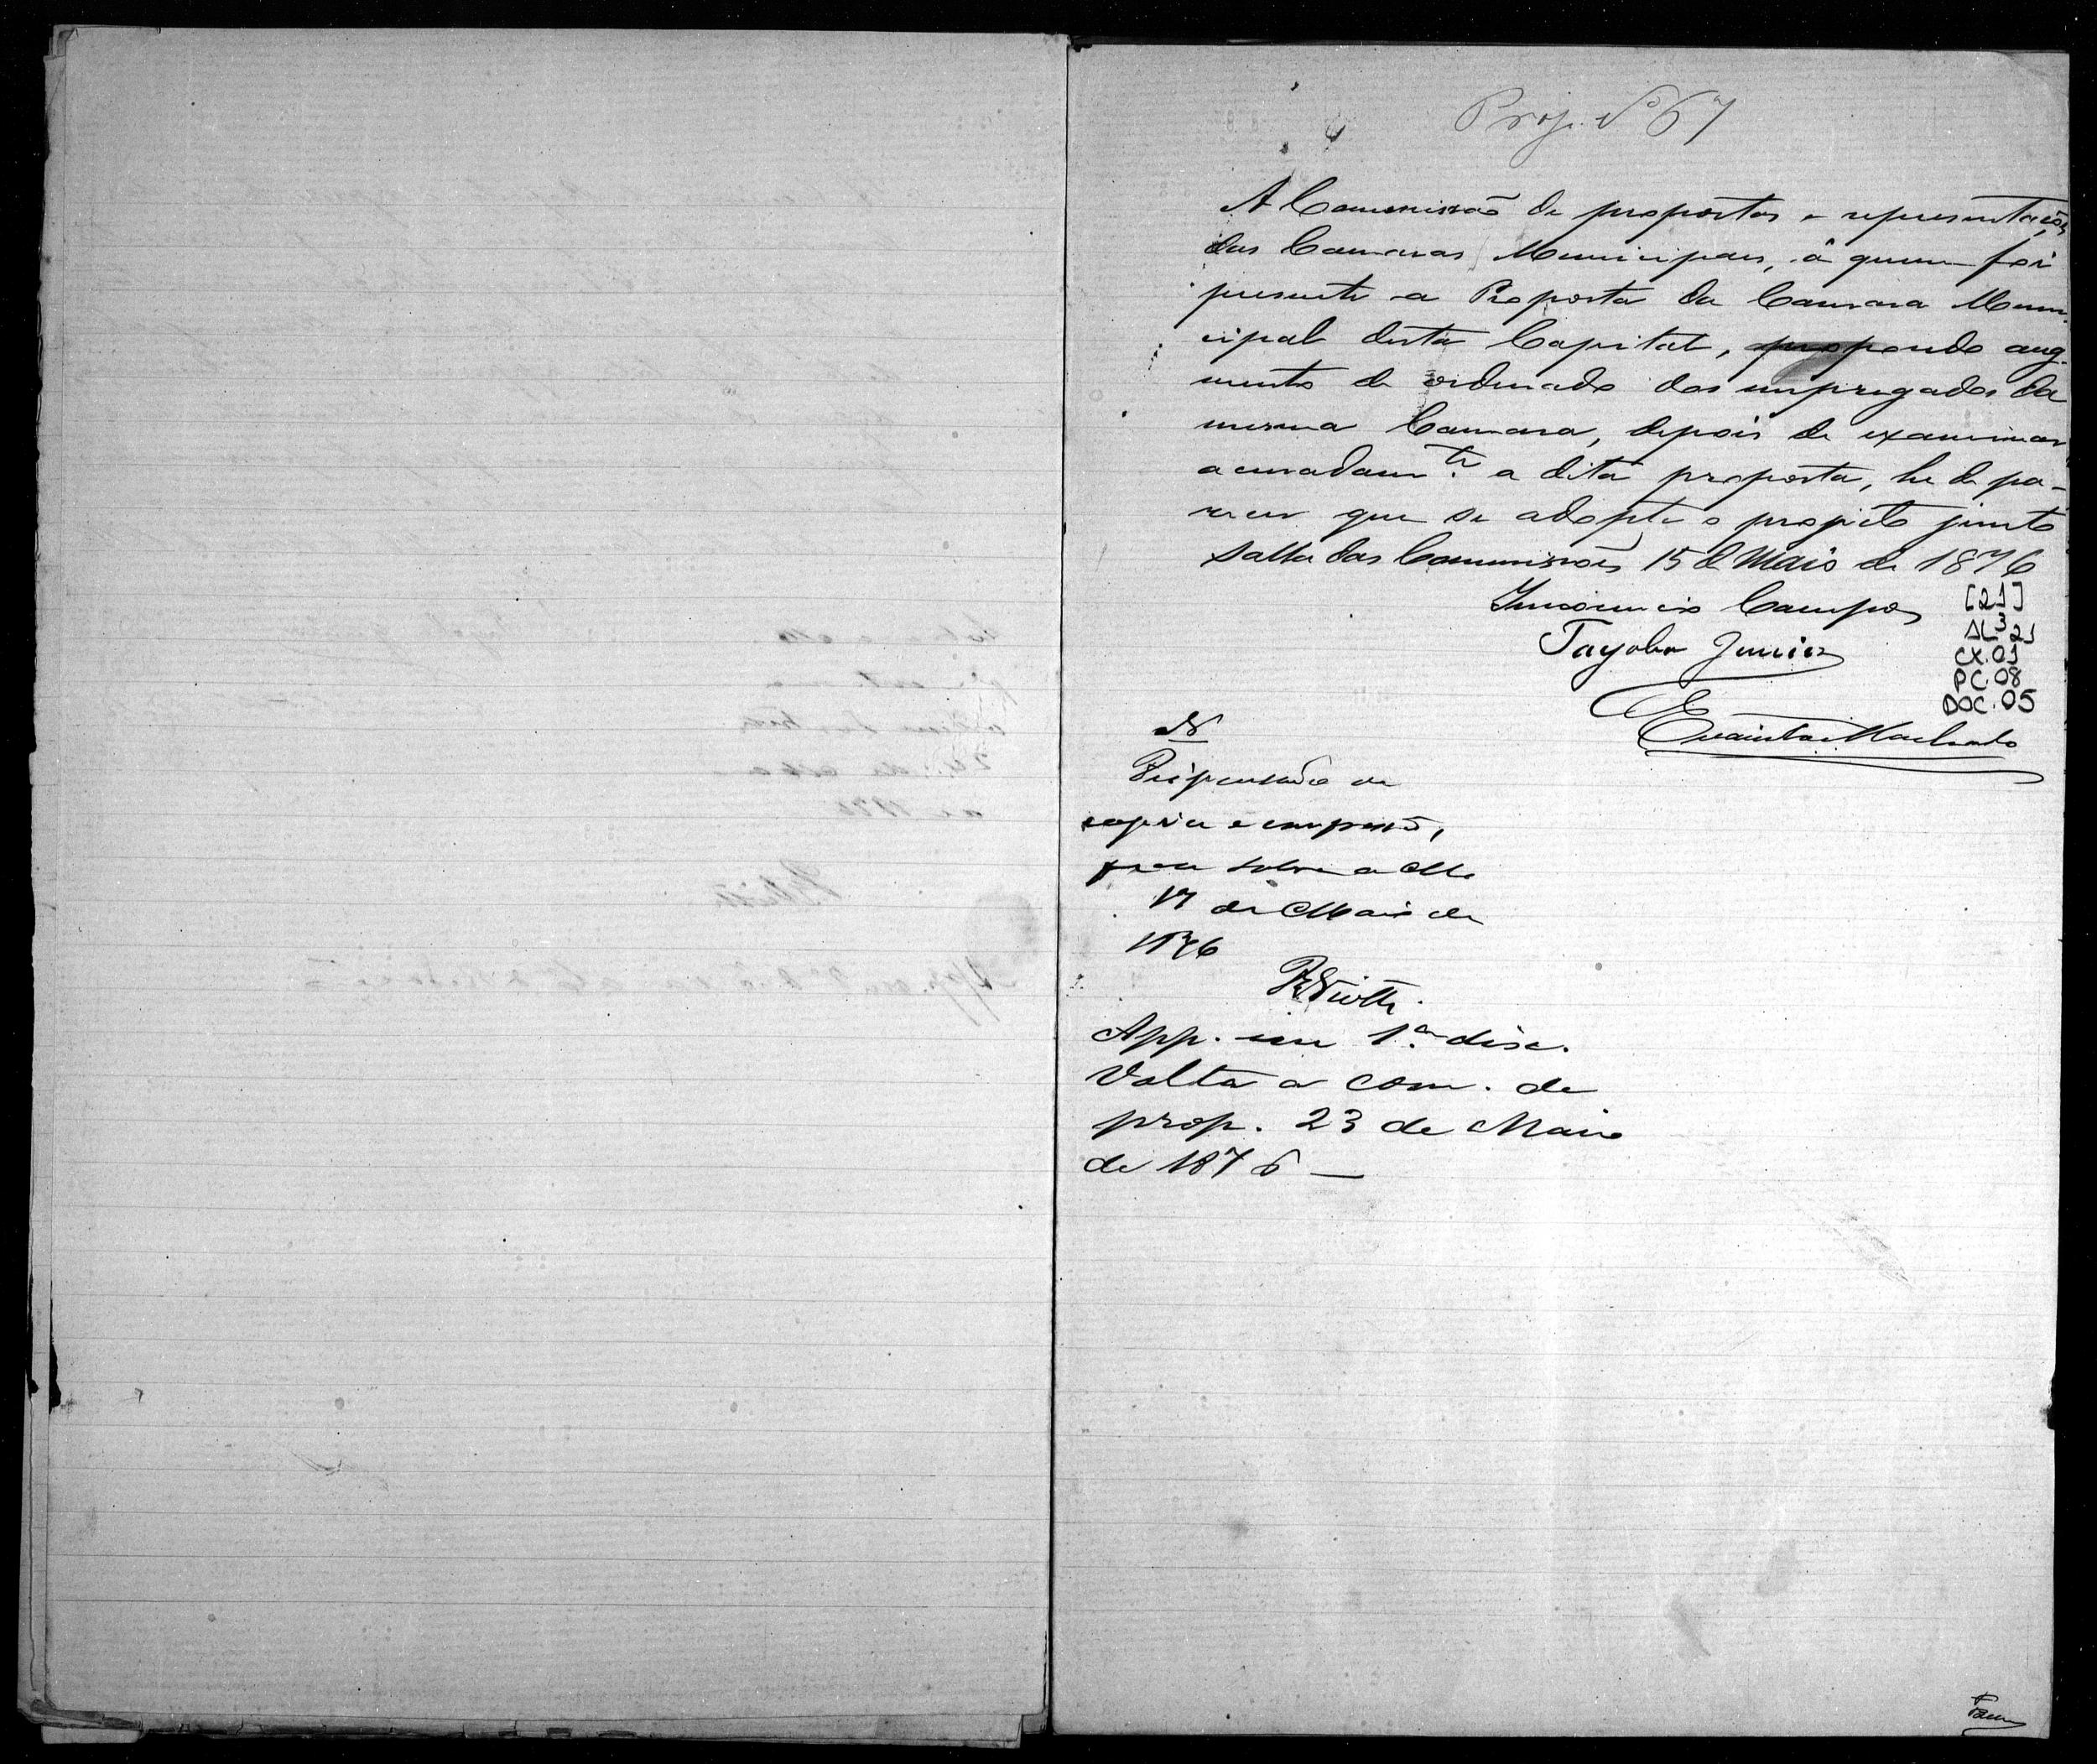 Proj. Nº 67
A Commissão de propostas e representações
das Camaras Municipaes, á quem foi
presente a Proposta da Camara Muni-
cipal desta Capital, propondo aug-
mento de ordenado dos empregados da
mesma Camara, depois de examinar
acuradam.te a dita proposta, he de pa-
recer que se adopte o projecto junto
Salla das Commissões 15 de Maio de 1876
Innocencio Campos
[21]
AL3 21
Tayobo Junior
CX.01
PC.08
DOC.05
Machado
N
Dispensado de
copia e impressão,
para sobre a Me
17 de Maio de
1876
App. em 1ª disc.
Volta a com. de
prop. 23 de Maio
de 1876 —